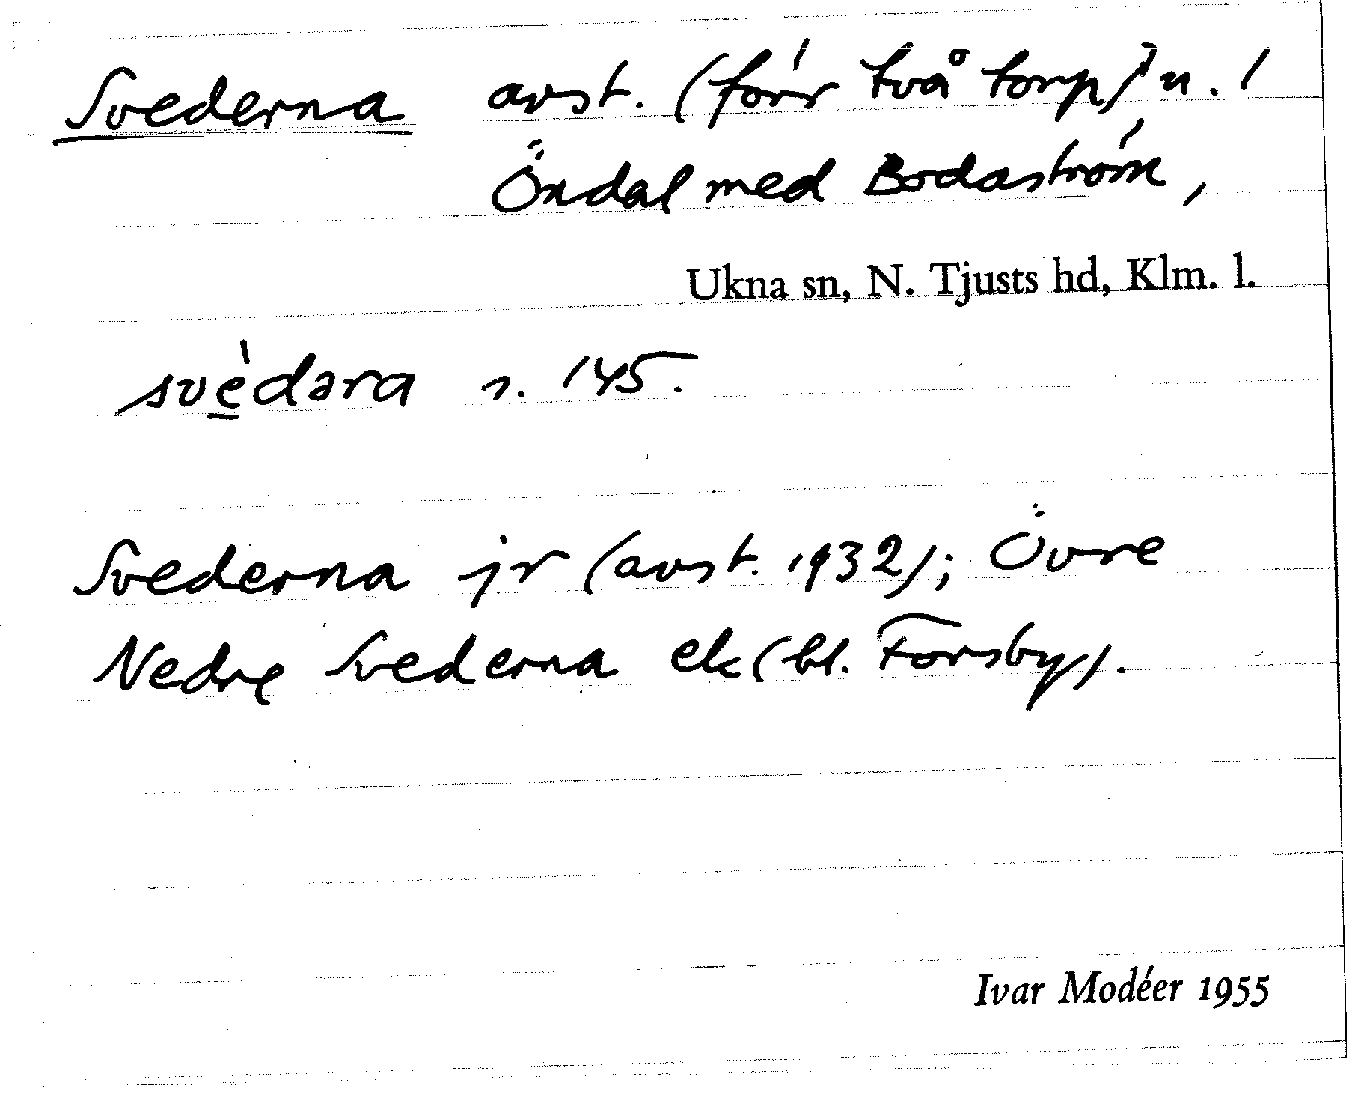 Svederna avst. (förr två torp) u. /
Öndal med Bodaström,
Ukna sn, N. Tjusts hd, Klm. l.
svè̱dəra s. 145.
Svederna jr (avst. 1932); Övre
Nedre Svederna ek (bl. Forsby).
Ivar Modéer 1955